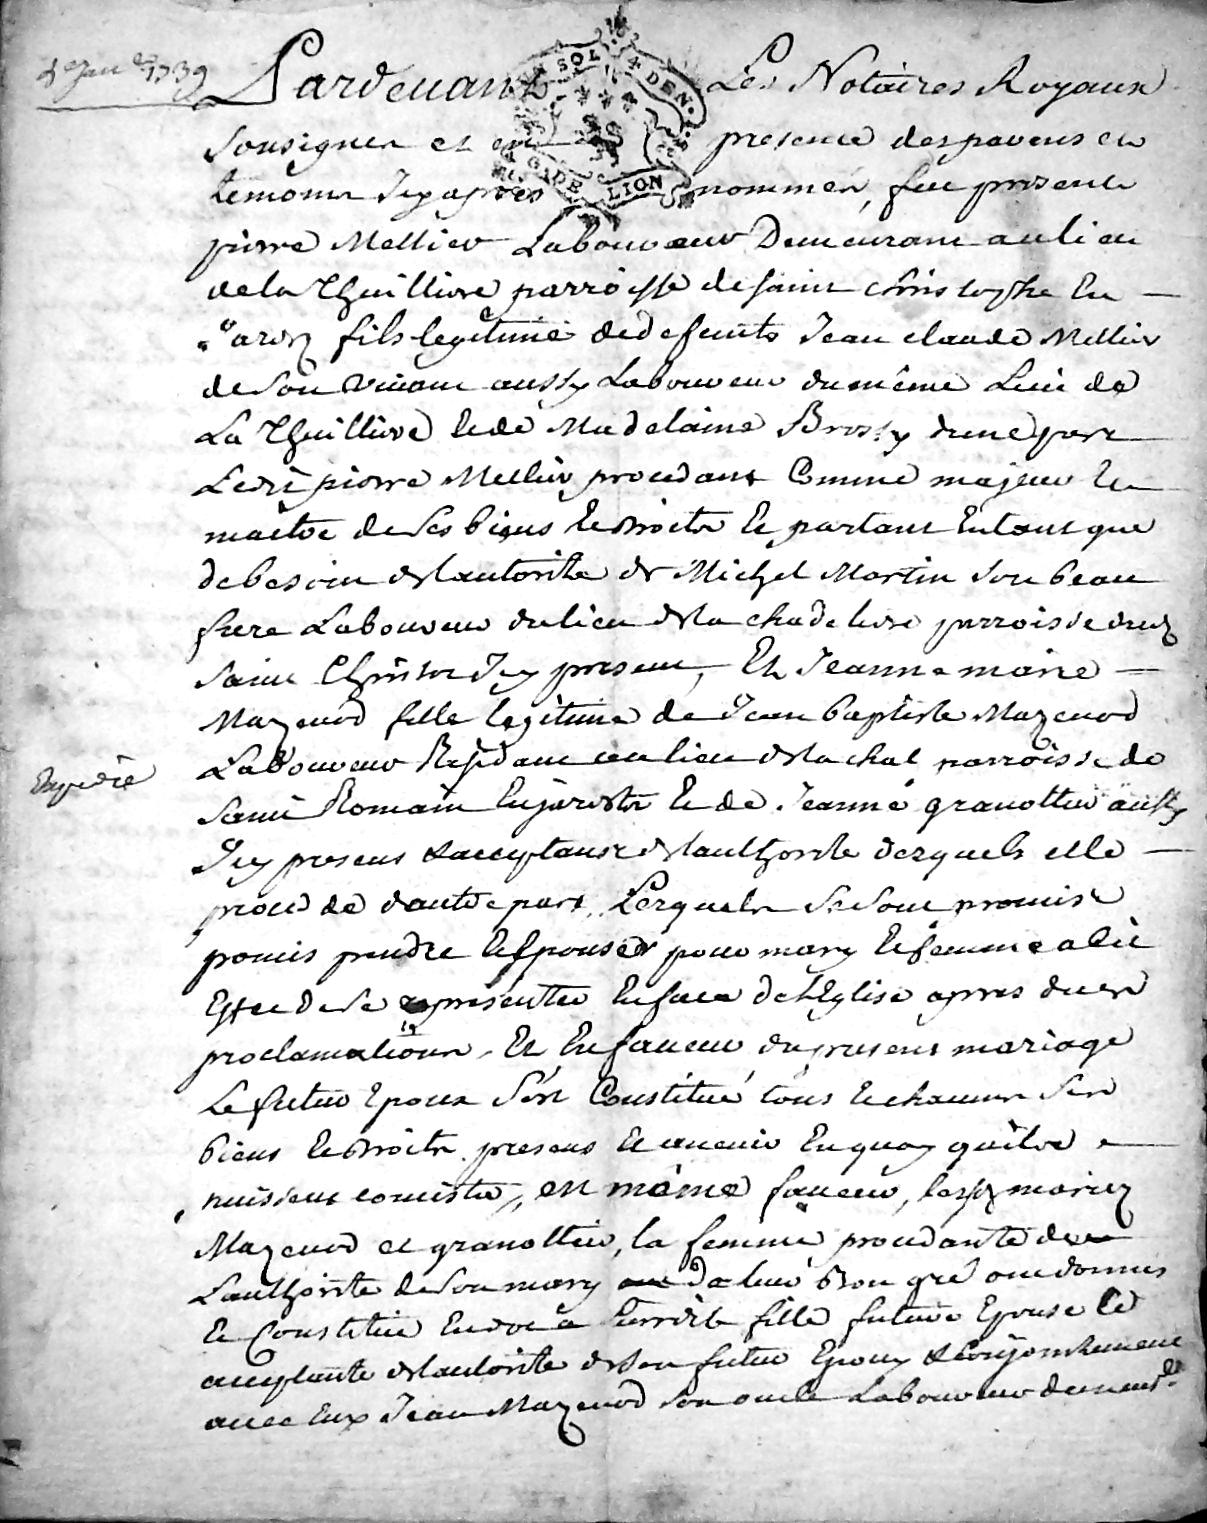 4e Janer 1739
Pardeuant Les Notaires Royaux
UN SOL 4 DEN.
G. DE LION
Sousignes et en presence des parens et
temoins Icy apres nommés, fut present
pierre Mellier Laboureur Demeurant au lieu
de la Thuilliere parroisse de saint christophe En
Jarez fils legitime de defunts Jean claude Mellier
de son viuant aussy Laboureur du même Lieu de
La Thuilliere et de Madelaine Brossy dune part
Ledit pierre Mellier procedant Comme majeur et
maitre de ses biens et droits et partant Entant que
de besoin de lautorité de Michel Martin son beau
frere Laboureur du lieu de la chadeliere parroisse dud
saint Christo Icy present, Et Jeanne marie
Mazenod fille legitime de Jean baptiste Mazenod
Laboureur Residant au lieu de la chal parroisse de
saint Romain En jarest et de Jeanne granottier aussy
Icy presens & acceptans de lauthorité desquels elle
procede dautre part, Lesquels se sont promis
promis prendre et Epouser pour mary et femme a cet
Effet de se representer En face de l'Eglise apres dues
proclamations, Et En faueur du present mariage
Le futur Epoux s'est Constitué tous et chacuns ses
biens et droits presens et auenir En quoy quils
puissent consister, en même faueur, lesd mariez
Mazenod et granottier, la femme procedante de
Lauthorité de son mary de leur bon gré ont donnés
et Constitué En dot a leurdite fille future Epouse
acceptante de lautorité de son futur Epoux & Conjointement
auec Eux Jean Mazenod son oncle Laboureur demeurt
Expedié